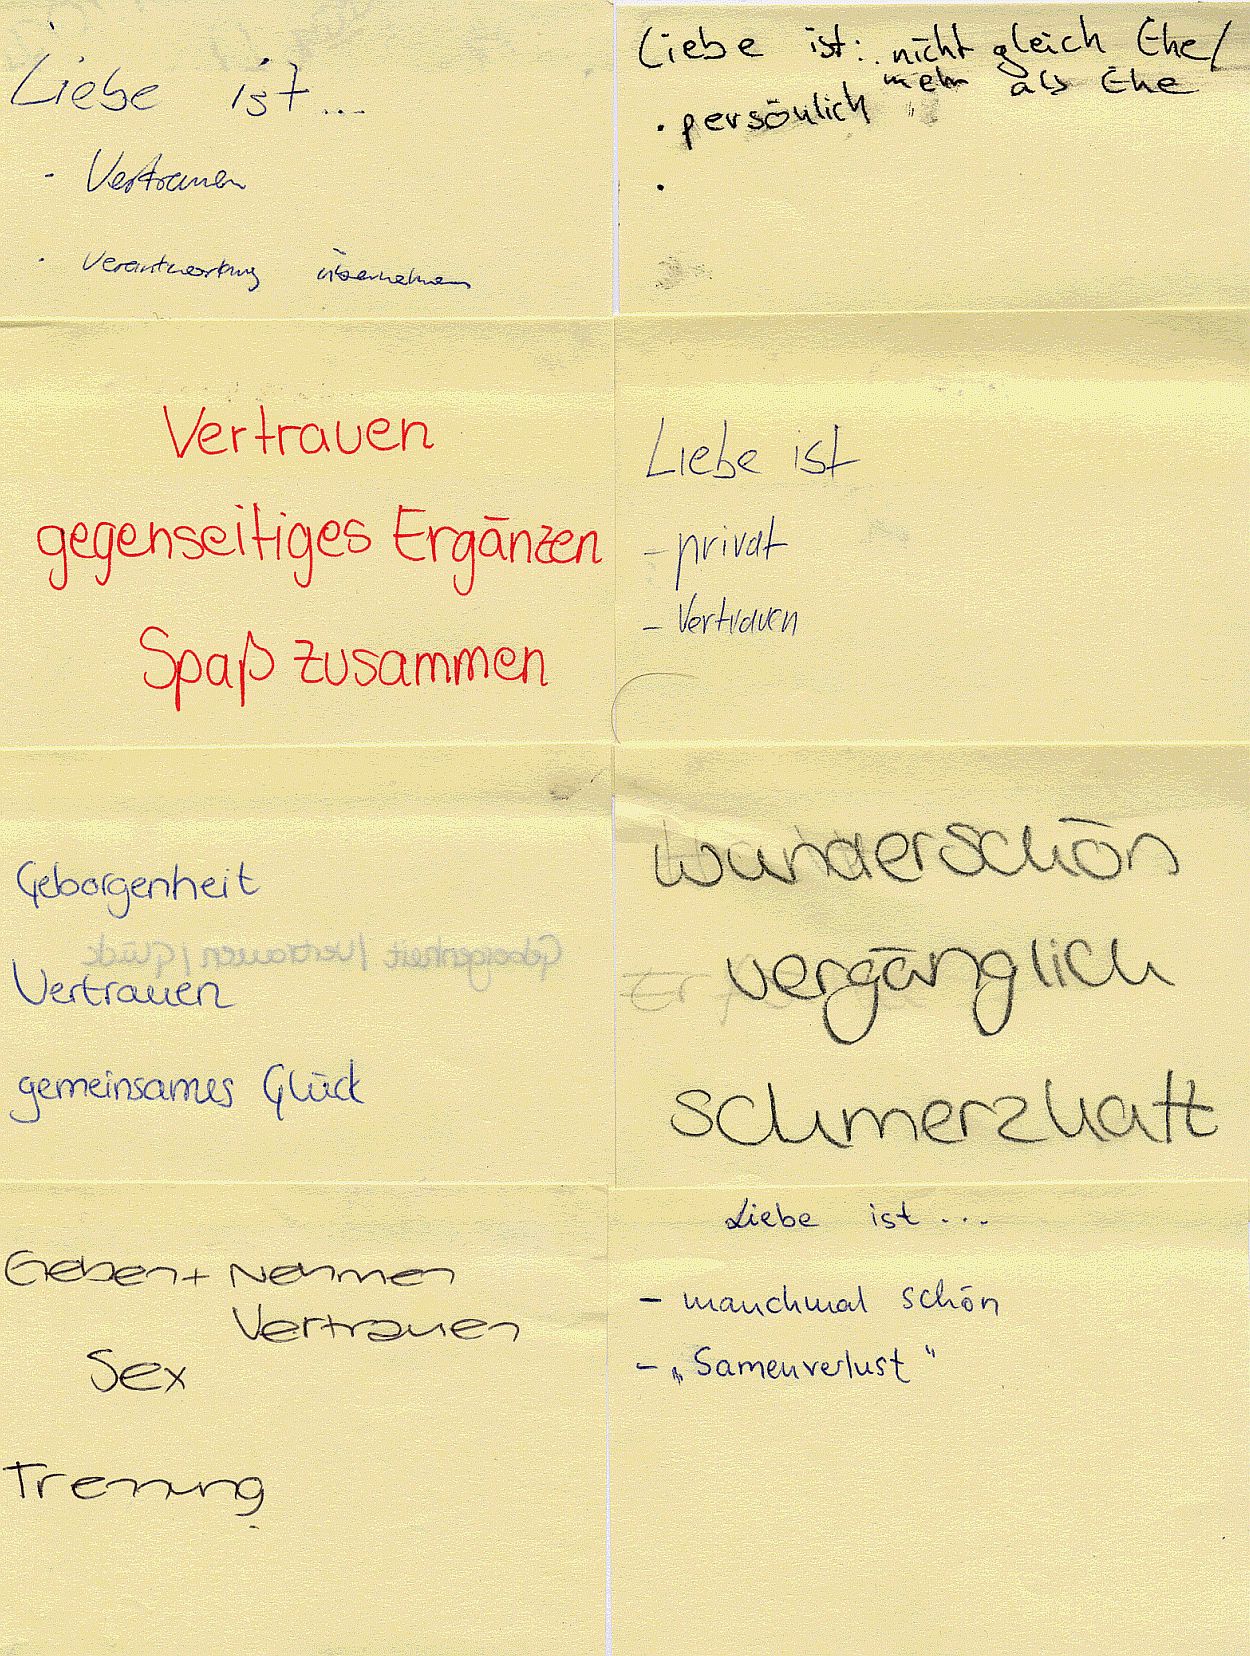 Liebe ist...
- Vertrauen
· Verantwortung übernehmen
Liebe ist: nicht gleich Ehe/
mehr als Ehe
· persönlich
·
Vertrauen
gegenseitiges Ergänzen
Spaß zusammen
Liebe ist
- privat
- Vertrauen
Geborgenheit
Geborgenheit / Vertrauen / Glück
Vertrauen
gemeinsames Glück
wunderschön
vergänglich
schmerzhaft
Geben + Nehmen
Vertrauen
Sex
Trennung
Liebe ist ...
- manchmal schön
- „Samenverlust"